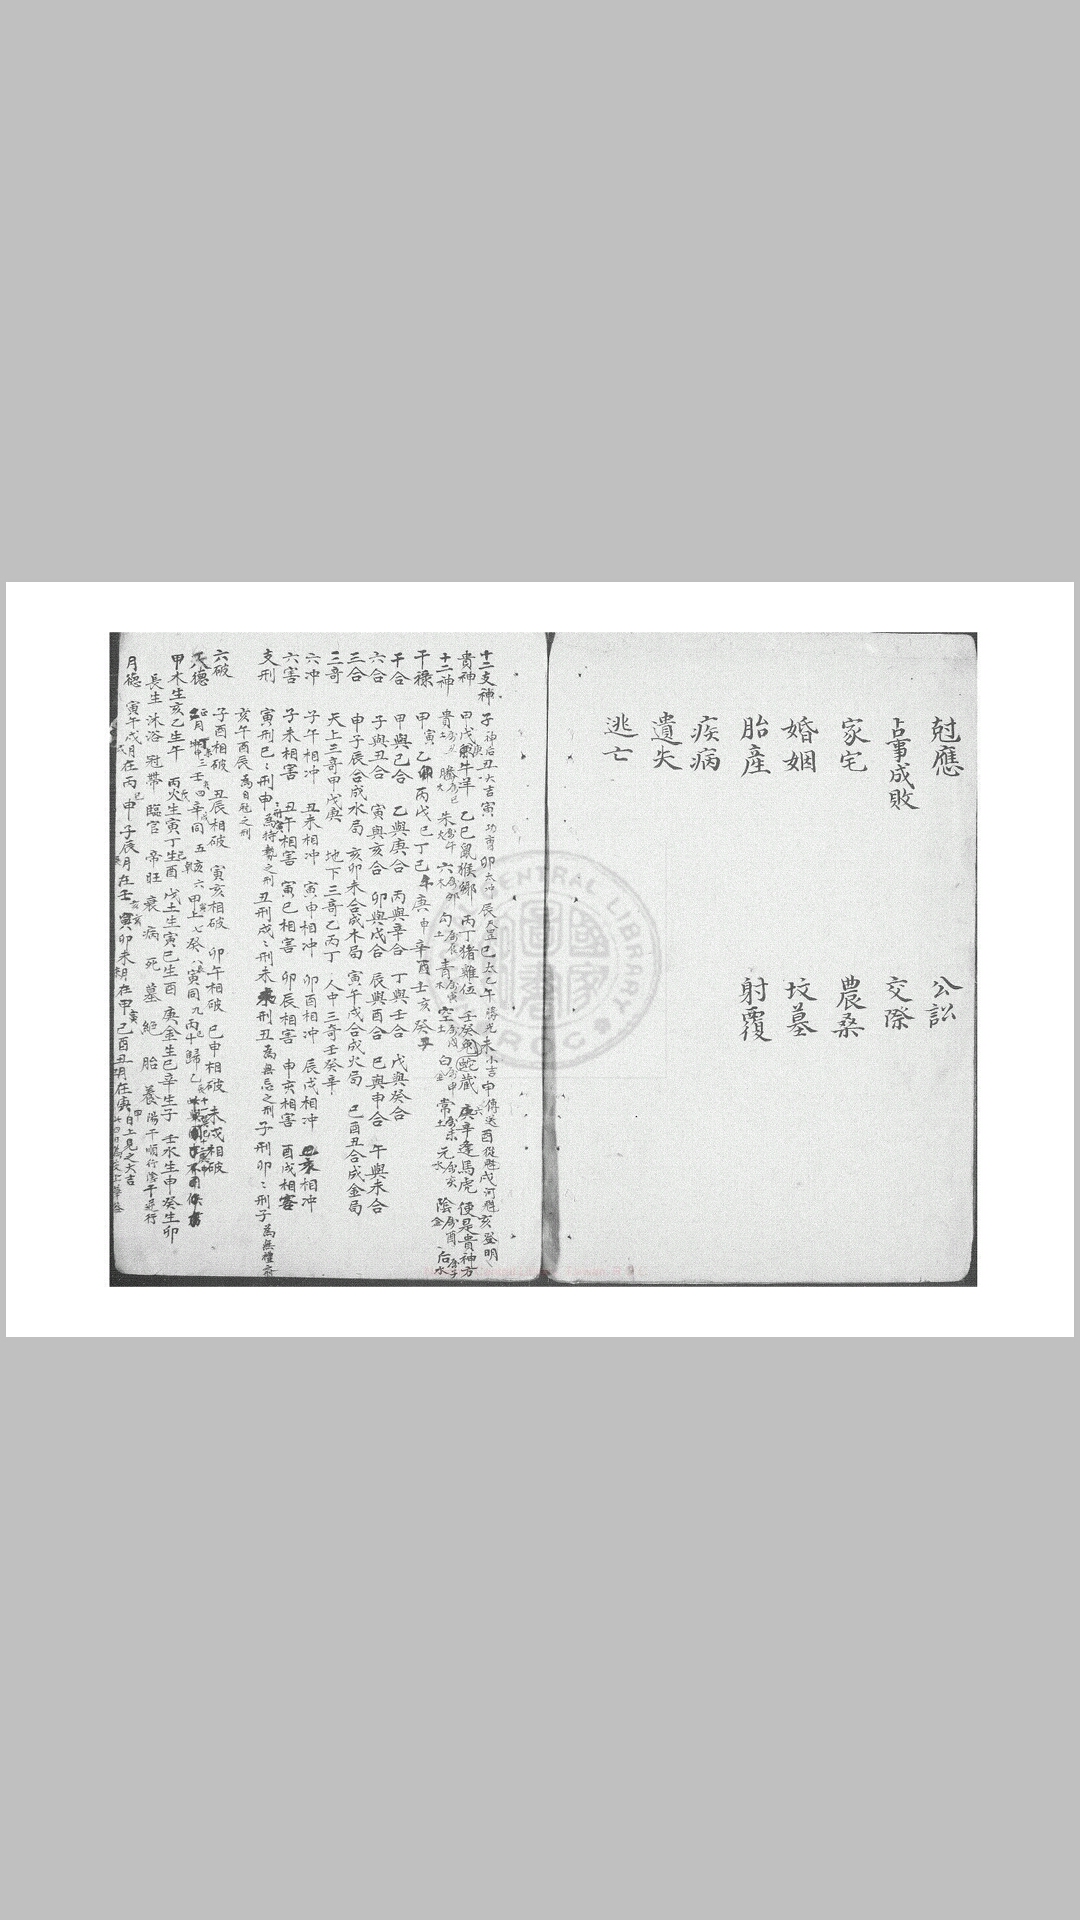 尅應　公訟
占事成敗　交際
家宅　農桑
婚姻　坟墓
胎產　射覆
疾病
遺失
逃亡
十二支神　子神后丑大吉寅功曹卯太冲辰天罡巳太乙午勝光未小吉申傳送酉從魁戌河魁亥登明
貴神　甲戊庚牛羊　乙巳鼠猴鄉　丙丁猪雞位　壬癸兔蛇藏　庚辛逢馬虎　便是貴神方
十二神　貴土　螣火　朱火　六木　勾土　青木　空土　白金　常土　元水　陰金　后水
干祿　甲寅　乙卯丙戊巳丁己午庚申辛酉壬亥癸子
干合　甲與己合　乙與庚合　丙與辛合　丁與壬合　戊與癸合
六合　子與丑合　寅與亥合　卯與戌合　辰與酉合　巳與申合　午與未合
三合　申子辰合成水局　亥卯未合成木局　寅午戌合成火局　巳酉丑合成金局
三奇　天上三奇甲戊庚　地下三奇乙丙丁　人中三奇壬癸辛
六冲　子午相冲　丑未相冲　寅申相冲　卯酉相冲　辰戌相冲　巳亥相冲
六害　子未相害　丑午相害　寅巳相害　卯辰相害　申亥相害　酉戌相害
支刑　寅刑巳〻刑申為恃勢之刑丑刑戌〻刑未刑丑為無恩之刑子刑卯〻刑子為無禮之刑
亥午酉辰為自刑之刑
六破　子酉相破　丑辰相破　寅亥相破　卯午相破　巳申相破　未戌相破
天德　正月　三壬四辛同　五亥六甲上　七癸八寅同九丙十歸乙
甲木生亥乙生午　丙火生寅丁生酉　戊土生寅己生酉　庚金生巳辛生子　壬水生申癸生卯
長生沐浴冠帶臨官帝旺衰病死墓絕胎養陽干順行陰干逆行
月德　寅午戌月在丙申子辰月在壬亥卯未月在甲巳酉丑月在庚日上見之大吉
CENTRAL LIBRARY
ROC